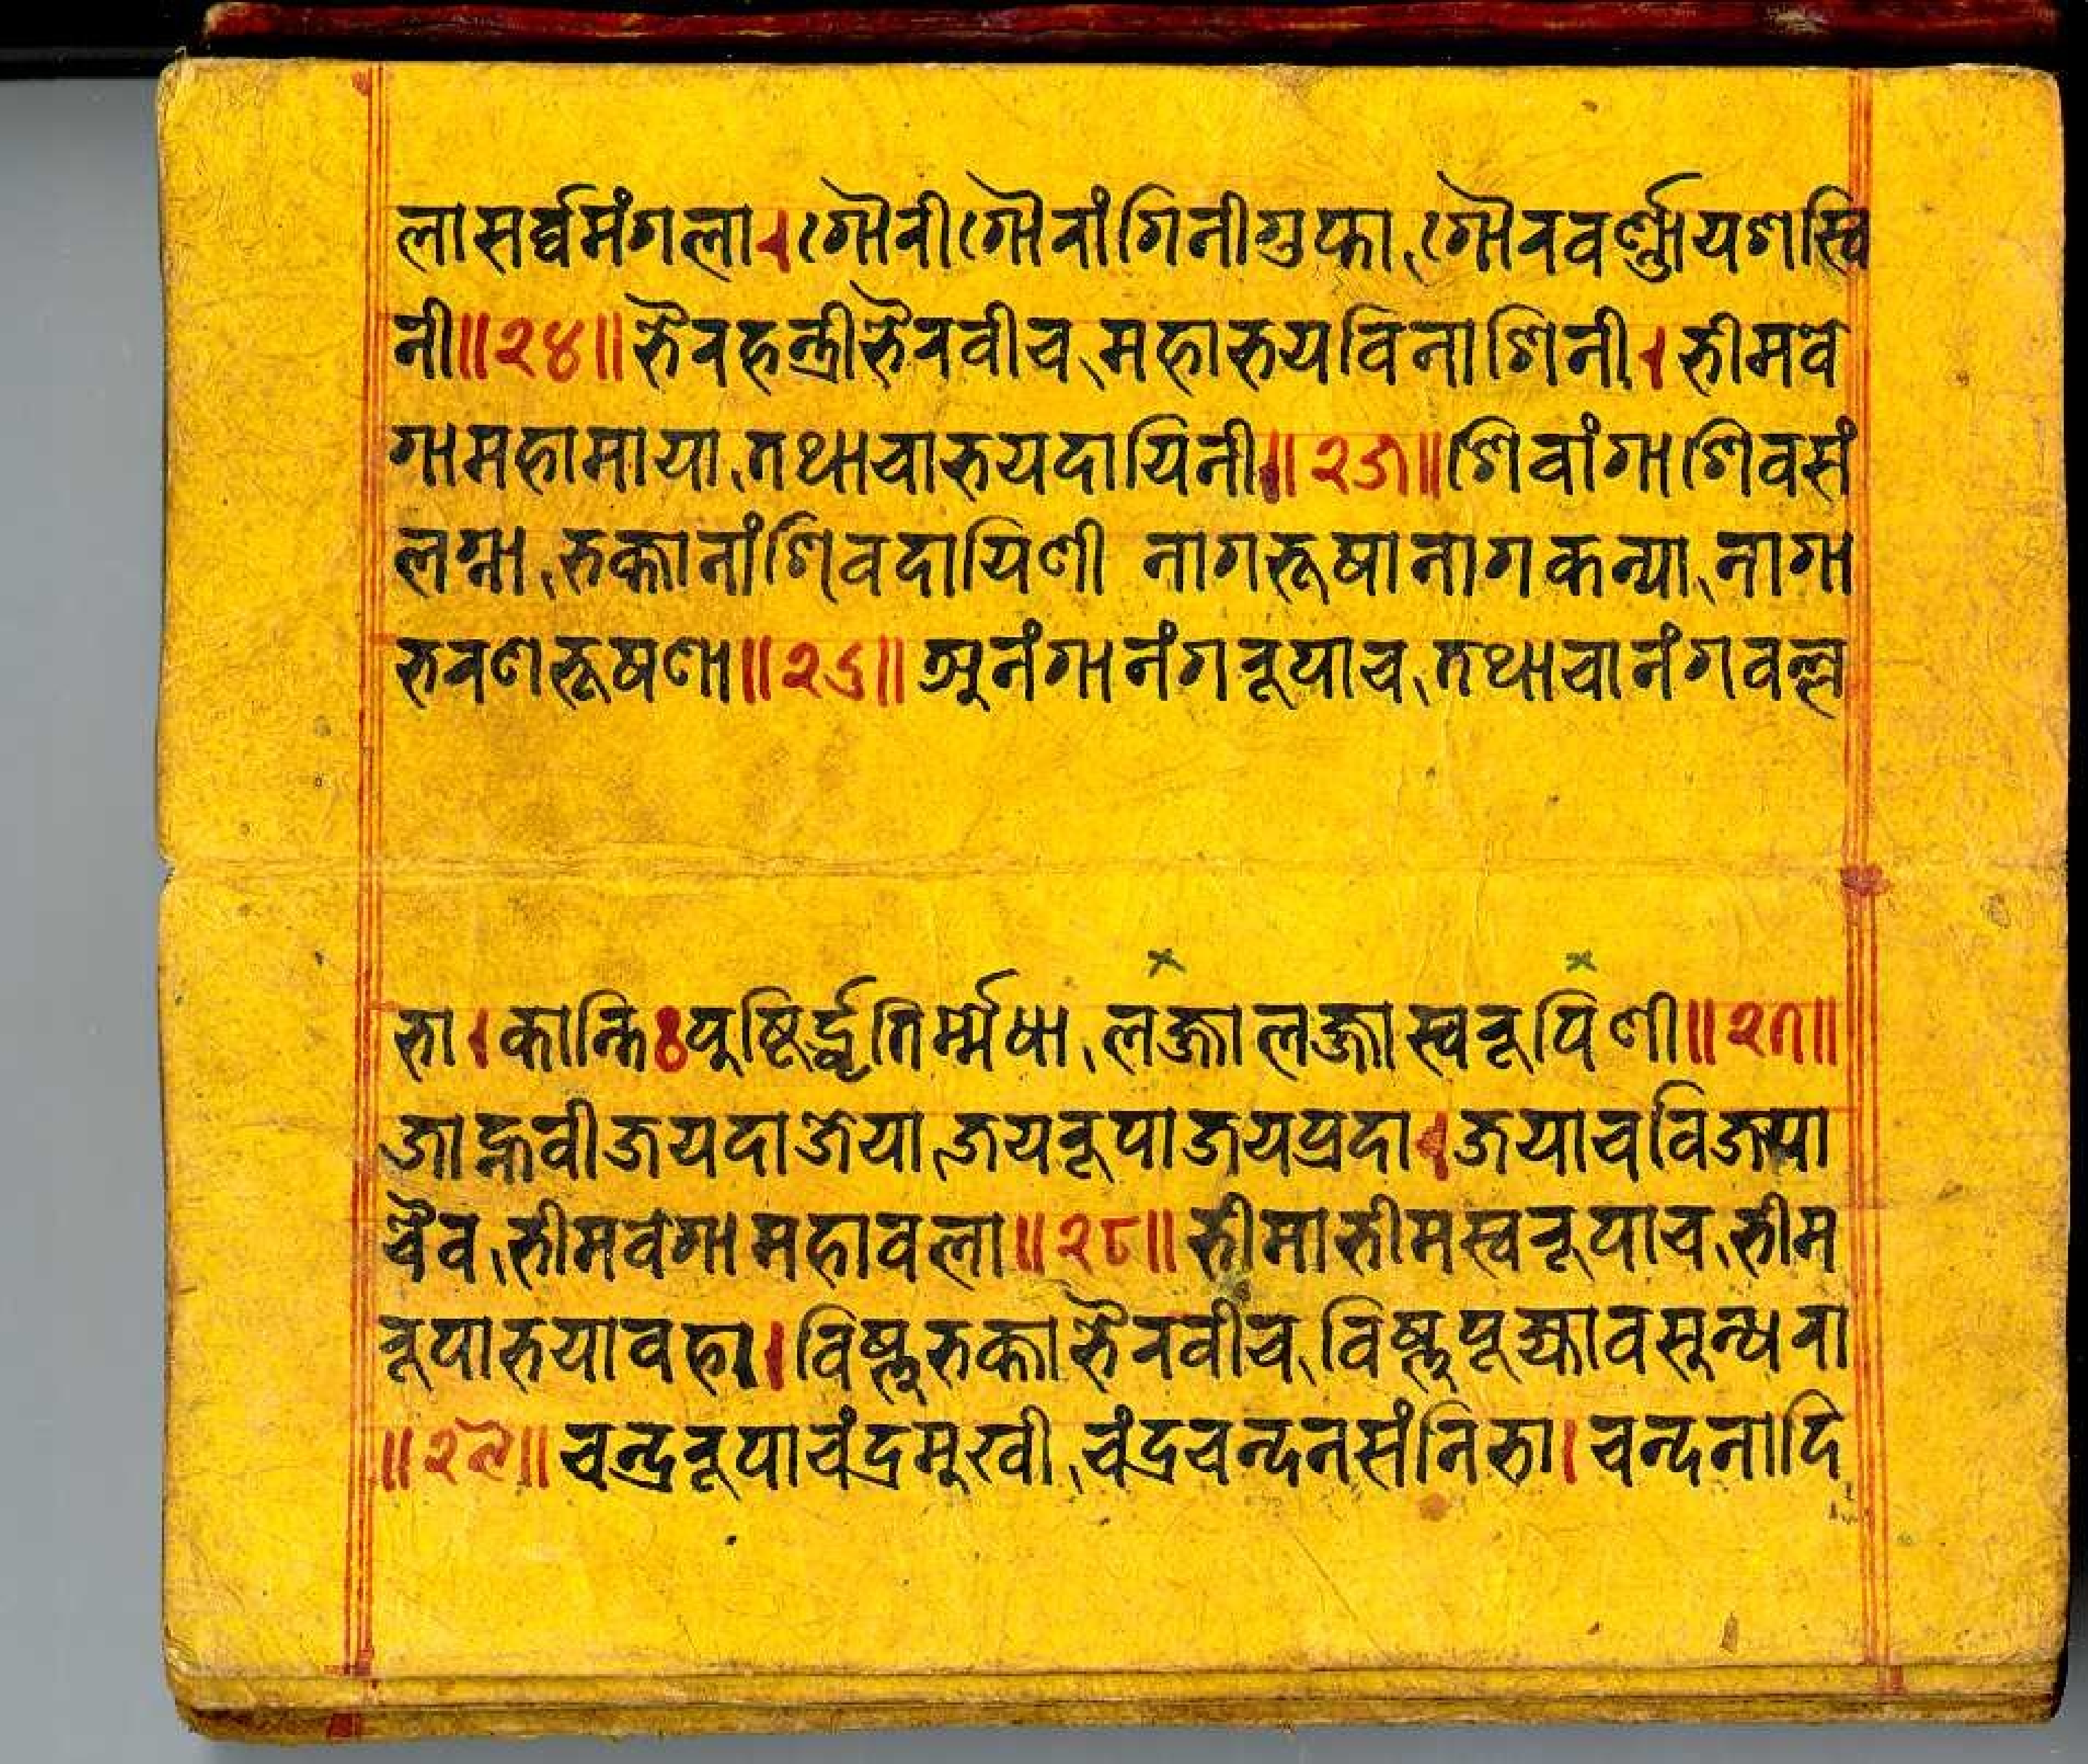 लासर्व्वमंगला।गौरीगौरांगिनीगुप्ता,गौरवर्ण्णायशस्वि
नी॥२४॥भैरहन्त्रीभैरवीच,महाभयविनाशिनी।भीमवे
गामहामाया,तथाचाभयदायिनी॥२५॥शिवांगाशिवसं
लग्ना,भक्तानांशिवदायिणी नागभूषानागकन्या,नागा
भरणभूषणा॥२६॥अनंगानंगरूपाच,तथाचानंगवल्ल
भा।कान्तिःपुष्टिर्द्धृतिर्म्मेधा,लज्जालज्जास्वरूपिणी॥२७॥
जाह्नवीजयदाजेया,जयरूपाजयप्रदा।जयाचविजया
चैव,भीमवेगामहावला॥२८॥भीमाभीमस्वरूपाच,भीम
रूपाभयावहा।विष्णुभक्ताभैरवीच,विष्णुपूज्यावसुन्धरा
॥२९॥चन्द्ररूपाचंद्रमुखी,चंद्रचन्दनसंनिभा।चन्दनादि